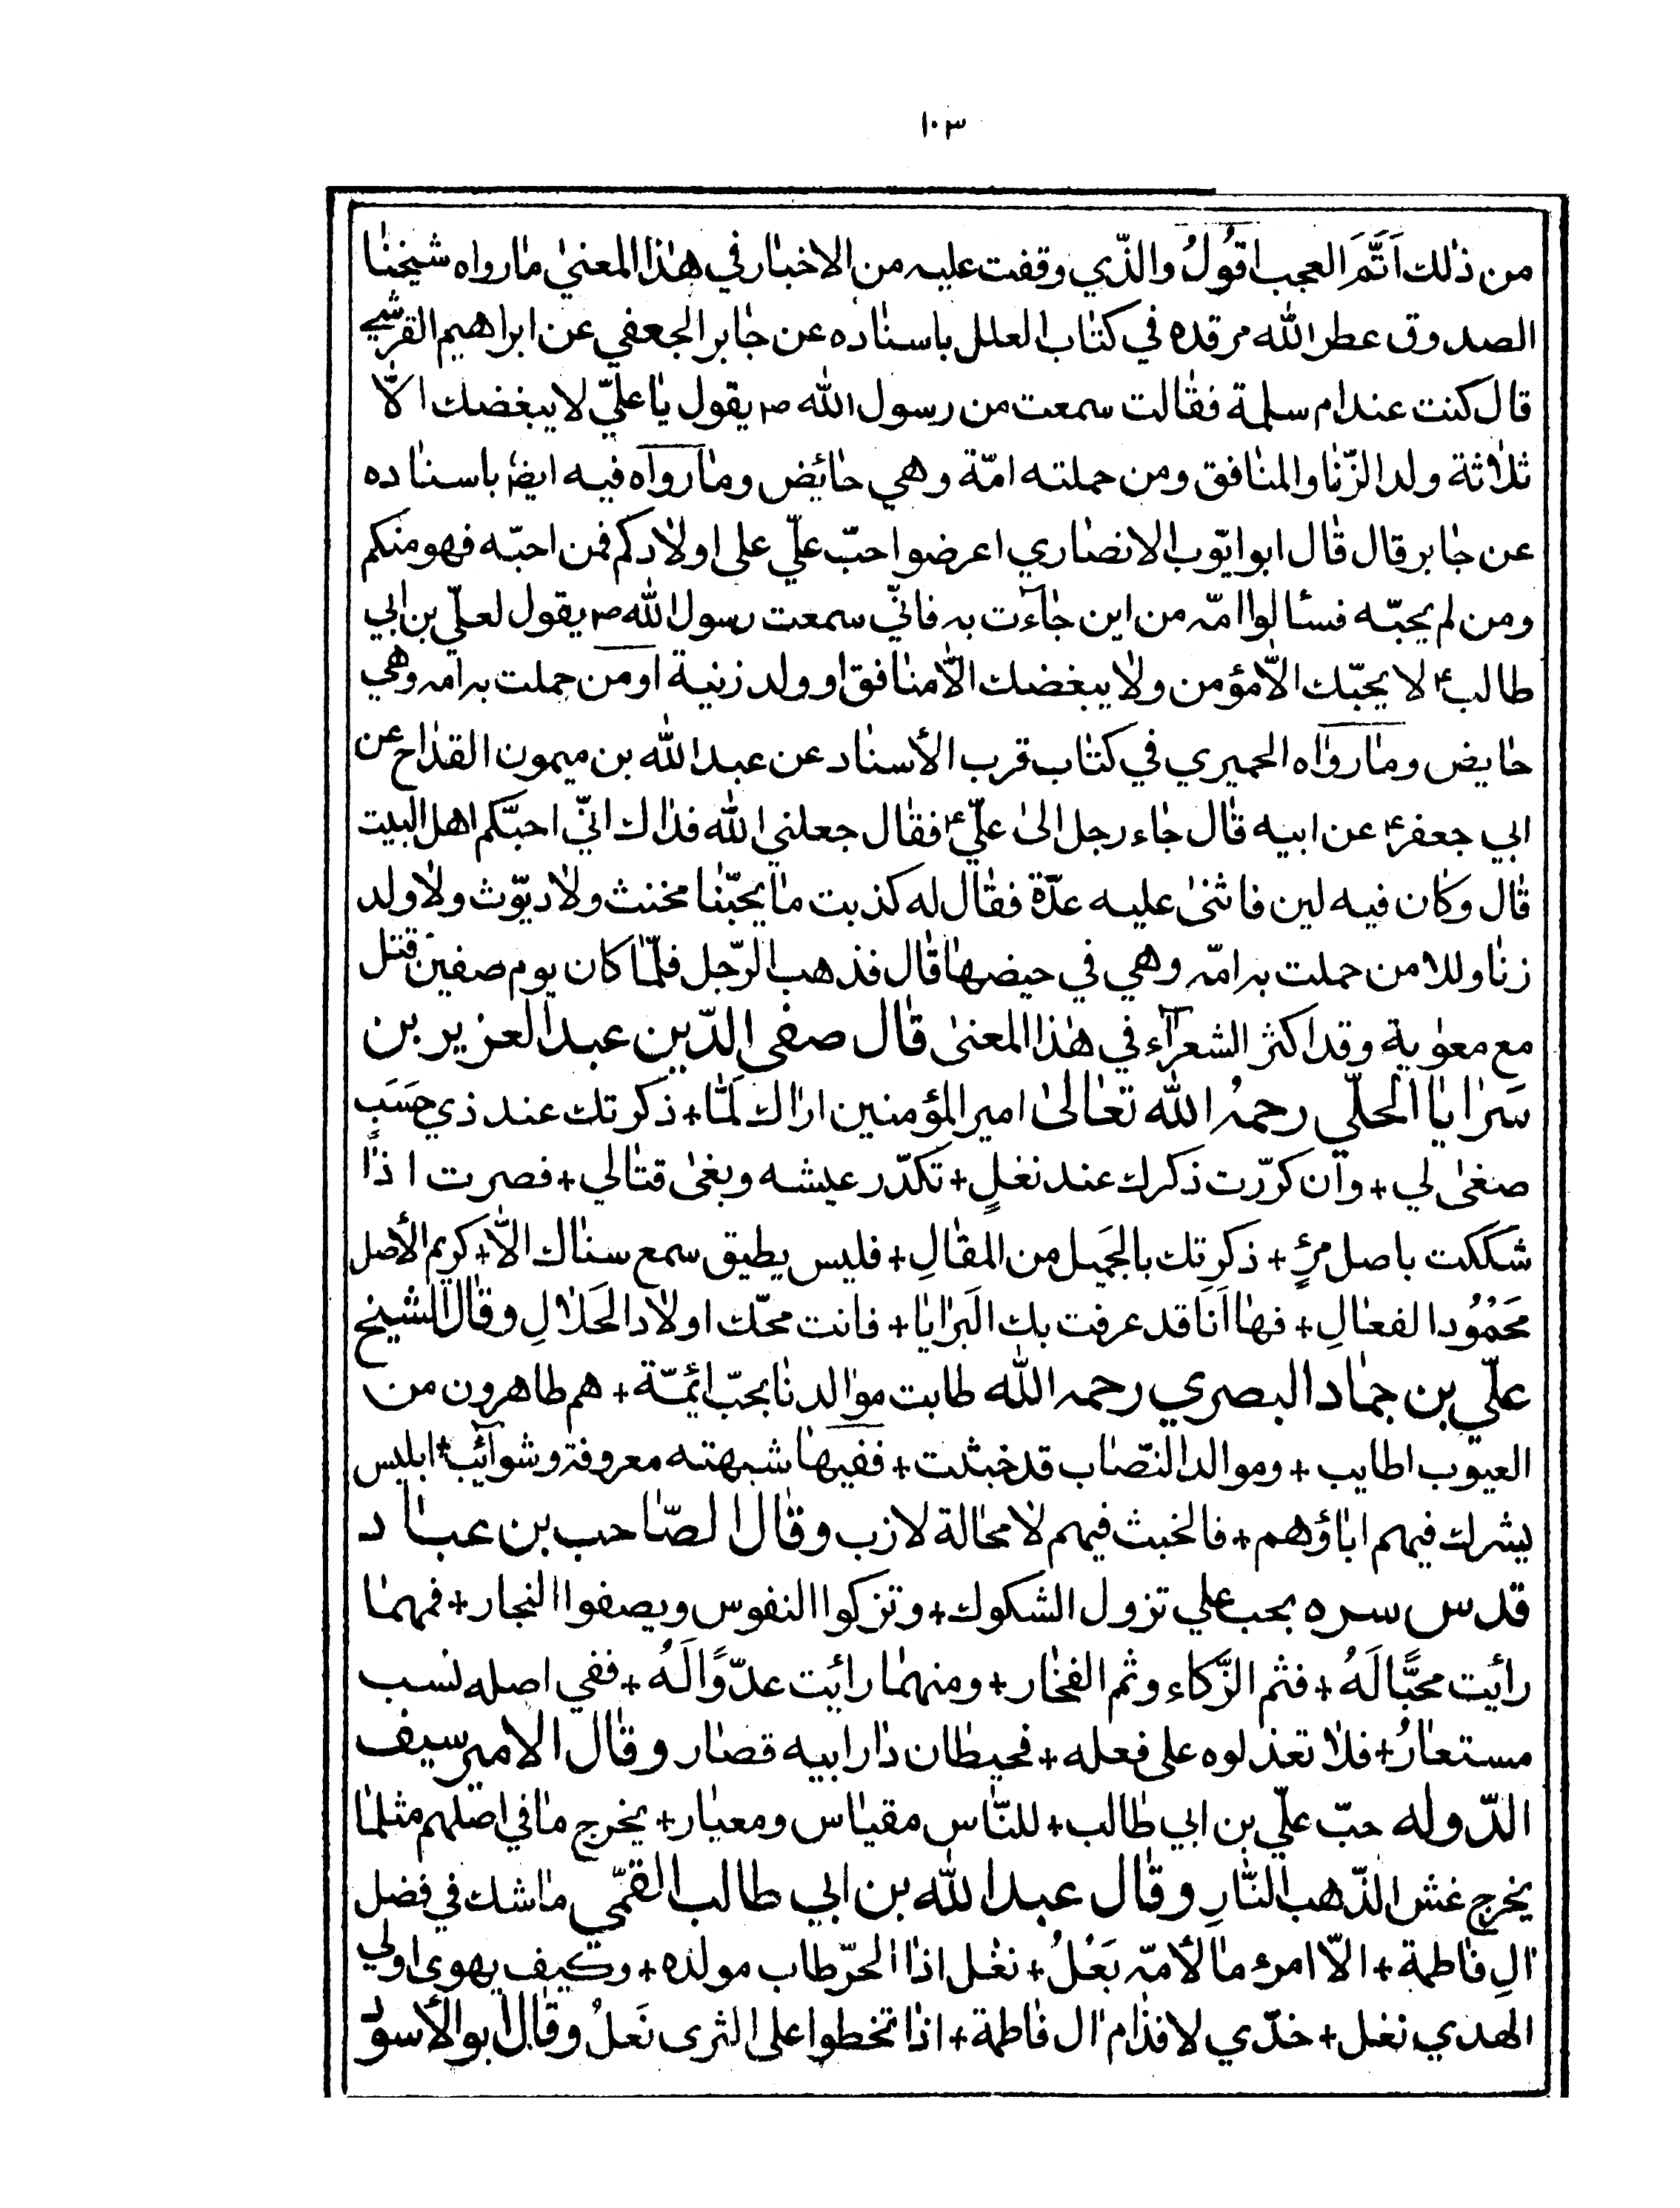 ١٠٣
من ذلك اتم العجب اقول والذي وقفت عليه من الاخبار في هذا المعنى ما رواه شيخنا
الصدوق عطر الله مرقده في كتاب العلل باسناده عن جابر الجعفي عن ابراهيم القرشي
قال كنت عند ام سلمة فقالت سمعت من رسول الله ص يقول يا علي لا يبغضك الا
ثلاثة ولد الزنا والمنافق ومن حملته امّة وهي حائض وما رواه فيه ايضا باسناده
عن جابر قال قال ابو ايّوب الانصاري اعرضوا حبّ عليّ على اولادكم فمن احبّه فهو منكم
ومن لم يحبّه فسئالوا امّه من اين جاءت به فانّي سمعت رسول الله ص يقول لعليّ بن ابي
طالب ع لا يحبّك الّا مؤمن ولا يبغضك الّا منافق او ولد زنية او من حملت به امه وهي
حايض وما رواه الحميري في كتاب قرب الأسناد عن عبد الله بن ميمون القداح عن
ابي جعفر ع عن ابيه قال جاء رجل الى عليّ ع فقال جعلني الله فداك انّي احبّكم اهل البيت
قال وكان فيه لين فاثنى عليه عدّة فقال له كذبت ما يحبّنا مخنث ولا ديّوث ولا ولد
زنا وللا من حملت به امّه وهي في حيضها قال فذهب الرّجل فلمّا كان يوم صفين قتل
مع معوية وقد اكثر الشعراء في هذا المعنى قال صفي الدّين عبد العزيز بن
سرايا الحلّي رحمه الله تعالى امير المؤمنين اراك لمّا + ذكرتك عند ذي حسب
صغى لي + وان كرّرت ذكرك عند نغلٍ + تكدّر عيشه وبغى قتالي + فصرت اذاً
شككت باصل مرءٍ + ذكرتك بالجميل من المقالِ + فليس يطيق سمع سناك الّا + كريم الأصل
محمود الفعالِ + فها انا قد عرفت بك البرايا + فانت محّك اولاد الحلالِ وقال الشيخ
عليّ بن حماد البصري رحمه الله طابت موالدنا بحبّ ائمّة + هم طاهرون من
العيوب اطايب + وموالد النصّاب قد خبثت + ففيها شبهته معروفة وشوائب + ابليس
يشرك فيهم اباؤهم + فالخبث فيهم لا محالة لازب وقال الصّاحب بن عباد
قدس سره بحب علي تزول الشكوك + وتزكوا النفوس ويصفوا النجار + فمهما
رأيت محبًّا لَهُ + فثم الزّكاء وثم الفخار + ومنهما رايت عدوًّا لَهُ + ففي اصله نسب
مستعارُ + فلا تعذلوه على فعله + فحيطان دار ابيه قصار وقال الامير سيف
الدّوله حبّ عليّ بن ابي طالب + للنّاس مقياس ومعيار + يخرج ما في اصلهم مثلما
يخرج غش الذّهب النّارِ وقال عبد الله بن ابي طالب القمّي ما شك في فضل
ال فاطمة + الّا امرء ما لأمّه بَعْلُ + نغل اذا الحرّ طاب مولده + وكيف يهوى اولي
الهدي نغل + خدّي لا قذام ال فاطمة + اذا تخطوا على الثرى نَعلُ وقال ابو الأسود